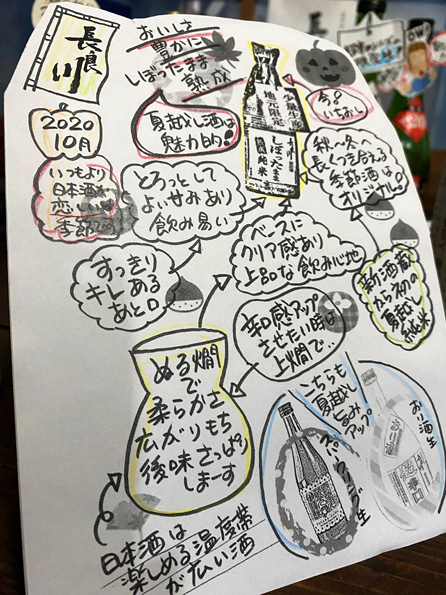 長良川
おいしさ
豊かに
しぼったまま
熟成
2020
10月
夏越し酒は
魅力的!
今の
いちおし
少量生産
地元限定
長良川
純米
いつもより
日本酒が
恋しい
季節
とろっとして
よいせみあり
飲み易い
秋〜冬へ
長くつき合える
季節酒は
オリジナル。
ベースに
クリア感あり
上品な飲み心地
すっきり
キレある
あと口
新酒蔵
から初の
夏越し
純米
辛口感アップ
させたい時は
上燗で、
ぬる燗
で
柔らかさ
広がりもち
後味さっぱり
しまーす
こちらも
夏越し
旨み
アップ
おり酒生
日本酒は
楽しめる温度帯
が広い酒